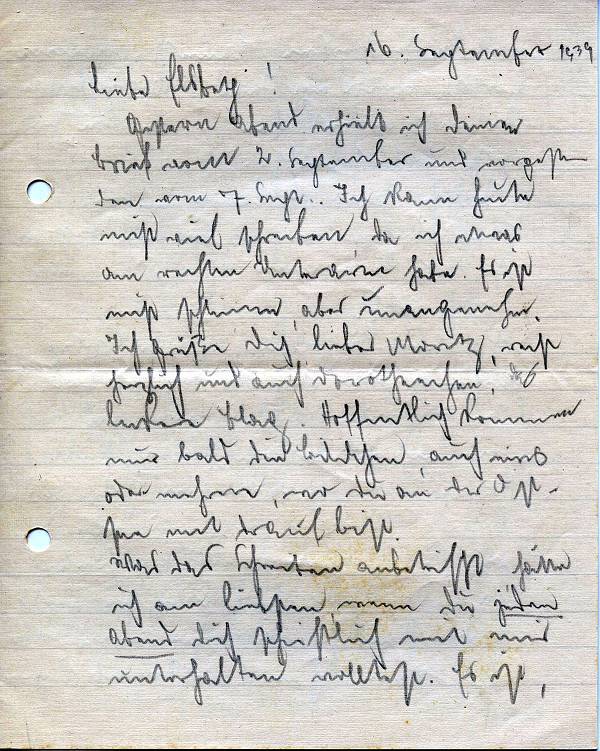 16. September 1939
Liebe Elsbeth!
Gestern Abend erhielt ich deinen
Brief vom 2. September und vorgestern
den vom 7. Sept.. Ich kann heute
nicht viel schreiben da ich etwas
am rechten Unterarm habe. Es ist
nicht schlimm, aber unangenehm.
Ich grüße Dich, lieber Moritz, recht
herzlich und auch Dorotheechen, das
liebe. Hoffentlich kommen
nun bald die Bildchen, auch eines
oder mehrere, wo du an der Ost-
see mit drauf bist.
Was das Schreiben anbetrifft hätte
ich am liebsten, wenn Du jeden
Abend dich schriftlich mit mir
unterhalten wolltest. Es ist,